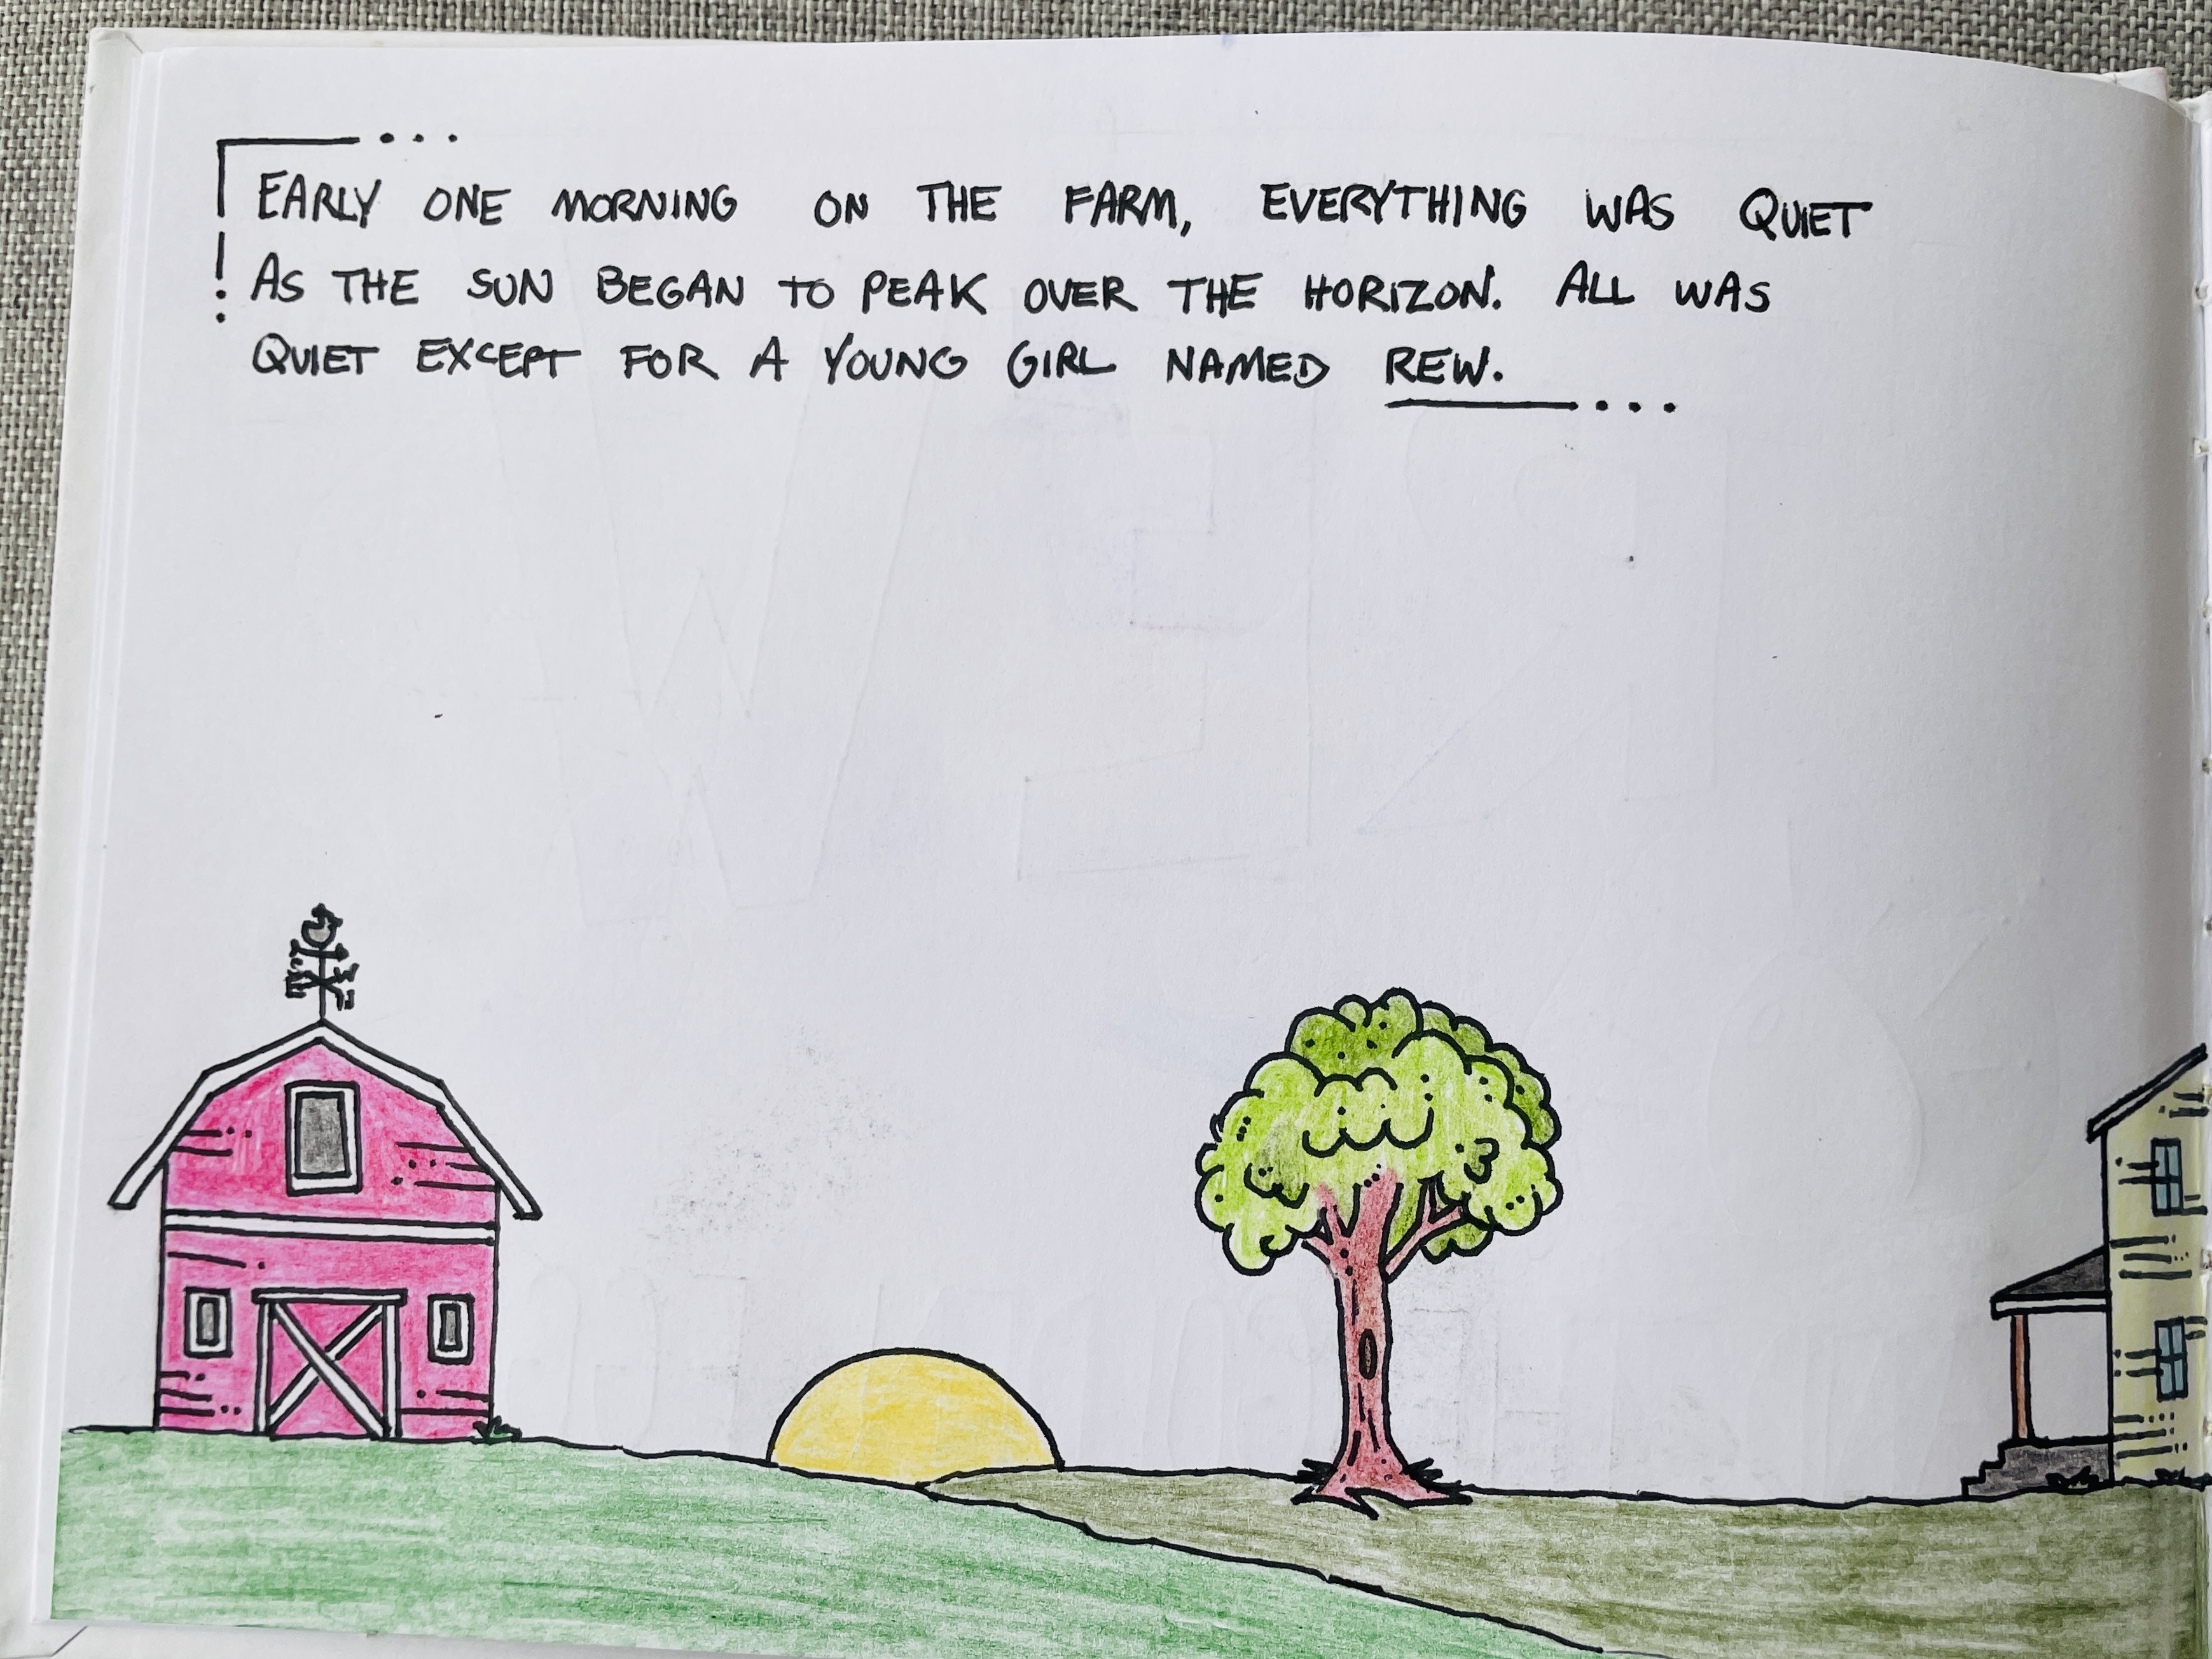 EARLY ONE MORNING ON THE FARM, EVERYTHING WAS QUIET
AS THE SUN BEGAN TO PEAK OVER THE HORIZON. ALL WAS
QUIET EXCEPT FOR A YOUNG GIRL NAMED REW.